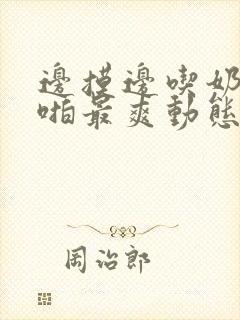 邊摸邊喫奶
啪最爽動態
岡治郎